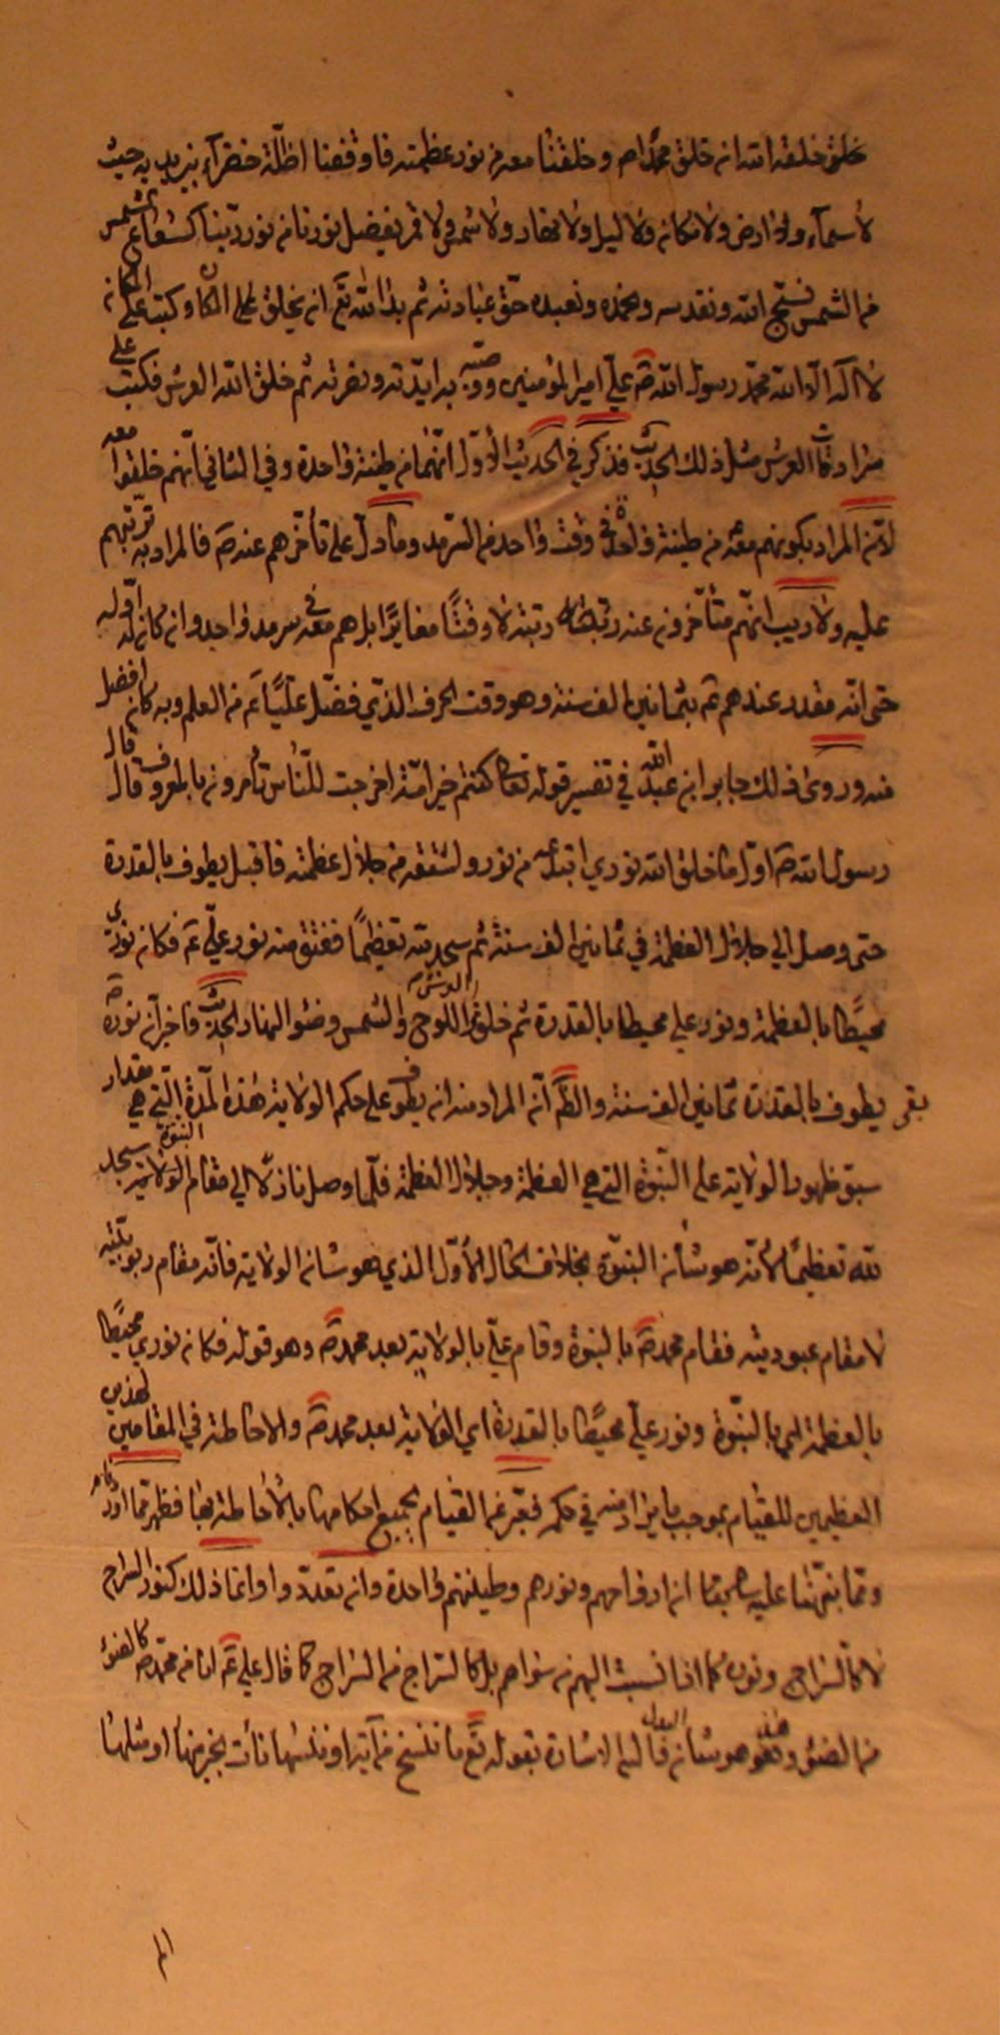 خلق خلقه الله انه خلق محمدا ص وخلقنا معه من نور عظمته فاوقفنا اظلة خضرآء بين يديه حيث
لا سمآء ولا ارض ولا مكان ولا ليل ولا نهار ولا شمس ولا قمر يفضل نورنا من نور ربنا كشعاع الشمس
من الشمس نسبح الله ونقدسه ونحمده ونعبده حق عبادته ثم بدا لله تع ان يخلق المكان وكتب على المكان
لا اله الا الله محمد رسول الله ص علي امير المؤمنين ووصيه به ايدته ونصرته ثم خلق الله العرش فكتب على
سرادقات العرش مثل ذلك الحديث فذكر في الحديث الاول انهما من طينة واحدة وفي الثاني انهم خلقوا معه
لان المراد بكونهم معه من طينة واحدة في وقت واحد من السرمد وما دل على تأخرهم عنه ص فالمراد به ترتبهم
عليه ولا ريب انهم متأخرون عنه رتبة لا وقتا مغايرا بل هم معه في سرمد واحد وان كان له اوله
حتى انه مقدر عندهم ع بثمانين الف سنة وهو وقت الحرف الذي فضل عليا ع من العلم وبه كان افضل
منه وروى ذلك جابر ابن عبد الله في تفسير قوله تعالى كنتم خير امة اخرجت للناس تأمرون بالمعروف قال قال
رسول الله ص اول ما خلق الله نوري ابتدعه من نوره واشتقه من جلال عظمته فاقبل يطوف بالقدرة
حتى وصل الى جلال العظمة في ثمانين الف سنة ثم سجد لله تعظيما ففتق منه نور علي ع فكان نوري
محيطا بالعظمة ونور علي محيطا بالقدرة ثم خلق العرش واللوح والشمس وضوء النهار الحديث فاخبر ان نوره ص
بقي يطوف بالقدرة ثمانين الف سنة والظ ان المراد منه انه يطوف على حكم الولاية هذه المدة التي هي مقدار
سبق ظهور الولاية على النبوة التي هي العظمة وجلال العظمة فلما وصل نازلا الى مقام النبوة سجد
لله تعظيما لانه هو شأن النبوة بخلاف الحال الاول الذي هو شان الولاية فانه مقام ربوبيته
لا مقام عبوديته فقام محمد ص بالنبوة وقام علي بالولاية بعد محمد ص وهو قوله فكان نوري محيطا
بالعظمة اي بالنبوة ونور علي محيطا بالقدرة اي الولاية بعد محمد ص والاحاطة في المقامين لهذين
العظيمين للقيام بموجب ما يراد منه في حكمه فعبر عن القيام بجميع احكامها بالاحاطة بها فظهر مما
ومما نبهنا عليه سابقا ان ارواحهم ونورهم وطينتهم واحدة وان تعدد وانما ذلك كنور السراج
لا كالسراج ونوره كما اذا نسبت اليهم من سواهم بل كالسراج من السراج كما قال علي ع انا من محمد ص كالضوء
من الضوء وهو شأن البدل واليه الاشارة بقوله تع ما ننسخ من آية او ننسها نأت بخير منها او مثلها
الم